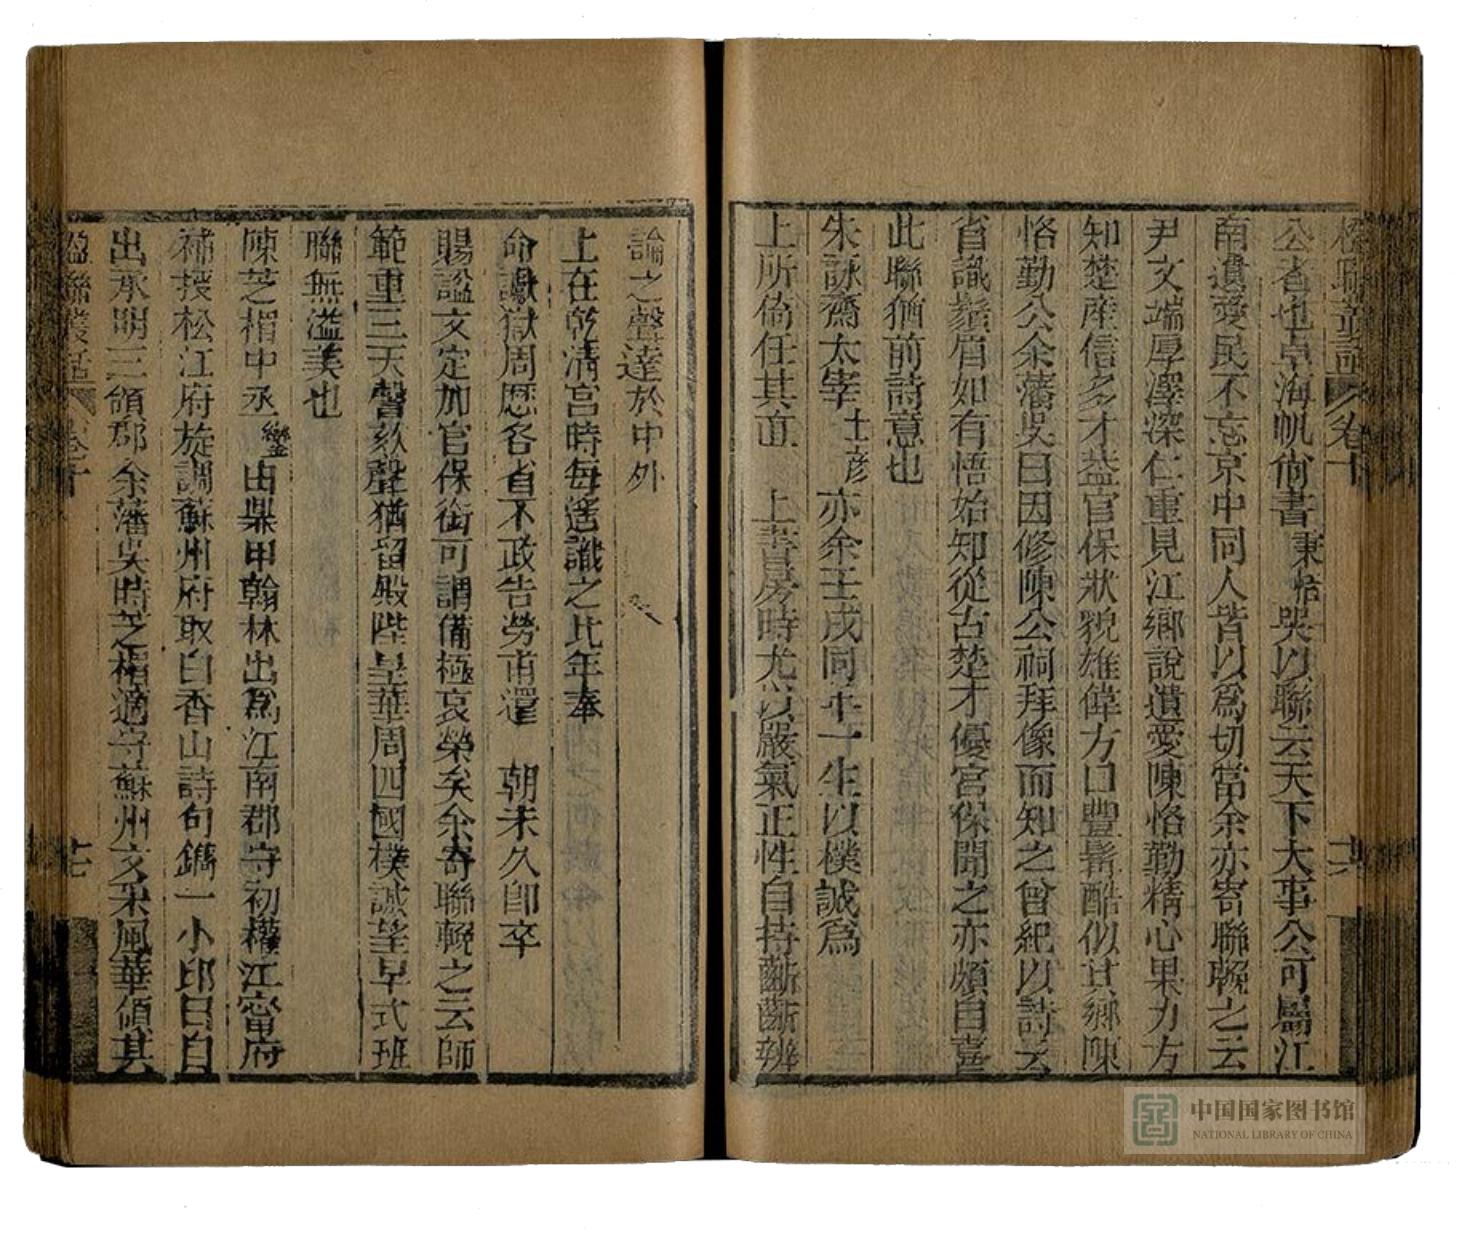 楹聯叢話 卷十 十六
公者也卓海帆尙書秉恬哭以聯云天下大事公可屬江
南遺愛民不忘京中同人皆以爲切當余亦寄聯輓之云
尹文端厚澤深仁重見江鄉說遺愛陳恪勤精心果力方
知楚產信多才益官保狀貌雄偉方口豐髯酷似其鄉陳
恪勤公余藩吳日因修陳公祠拜像而知之曾紀以詩云
省識鬚眉如有悟始知從古楚才優宮保聞之亦頗自喜
此聯猶前詩意也
朱詠齋太宰士彥亦余壬戌同年一生以樸誠爲
上所倚任其直 上書房時尤以嚴氣正性自持斷斷辨
論之聲達於中外
上在乾清宮時每遙識之比年奉
命讞獄周歷各省不政告勞甫還 朝未久卽卒
賜謚文定加官保銜可謂備極哀榮矣余寄聯輓之云師
範重三天謦欬聲猶留殿陛星華周四國樸誠望早式班
聯無溢美也
陳芝楣中丞鑾由鼎甲翰林出爲江南郡守初權江甯府
補授松江府旋調蘇州府取白香山詩句鐫一小印曰自
出承明三領郡余藩吳時芝楣適守蘇州文采風華傾其
楹聯叢話 卷十 十七
中国国家图书馆
NATIONAL LIBRARY OF CHINA